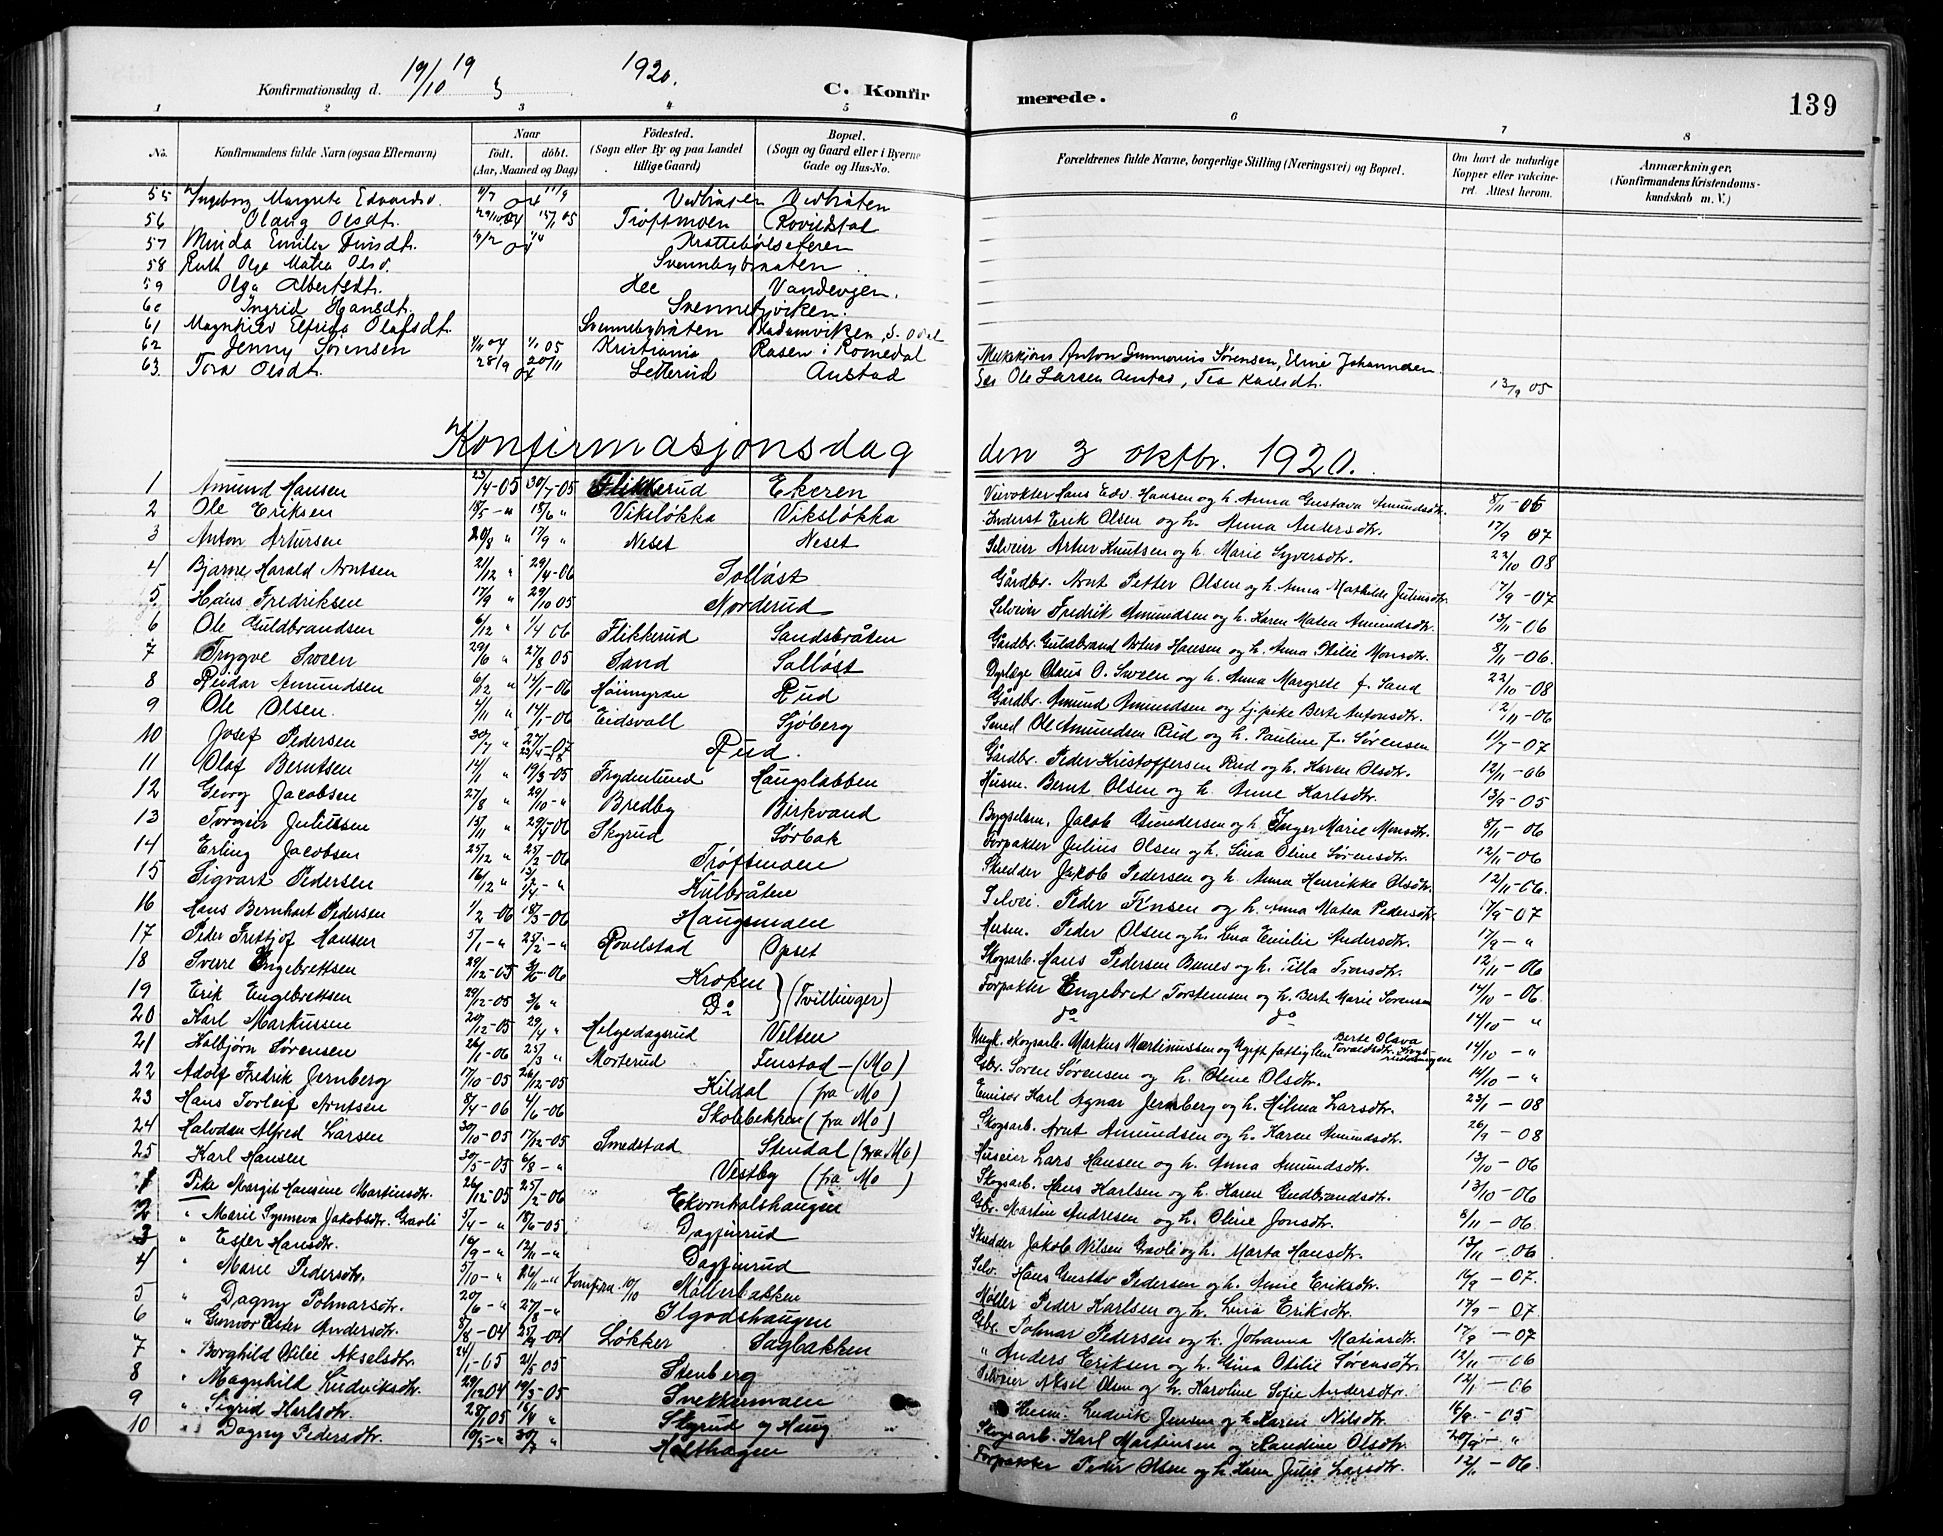 Konfirmationsdag d. 19/10 19 1920. C. Konfirmerede. 139
1 2 3 4 5 6 7 8
No. Konfirmandens fulde Navn (ogsaa Efternavn) Naar født. døbt. (Aar, Maaned og Dag) Fødested. (Sogn eller By og paa Landet tillige Gaard) Bopæl. (Sogn og Gaard eller i Byerne Gade og Hus-No. Forældrenes fulde Navne, borgerlige Stilling (Næringsvei) og Bopæl. Om havt de naturlige Kopper eller vakcineret. Attest herom. Anmærkninger. (Konfirmandens Kristendomskundskab m. V.)
55 Ingeborg Margrete Edvardsd. 04 Vedbråten
56 Olaug Olsdt. 29/10 04 15/1 05 Trøftmoen
57 Minda Emilie 19/2 04 Krattebølseteren
58 Ruth Olga Matea Olsd. Svennebybråten
59 Olga Albertsdt. Vandevjen.
60 Ingrid Hansdt. Svennebyviken.
61 Magnhild Elfrida Olafsdt. Svennebybråten S. Odal
62 Jenny Sørensen 05 Kristiania Rasen i Romedal Anton Sørensen, Eline Johannesen
63. Tora Olsdt. 28/9 04 20/11 Setterud Anstad Ole Larsen Anstad, Tea Karlsdt. 13/9 05
Konfirmasjonsdag den 3 oktbr. 1920.
1 Amund Hansen 23/4-05 30/7-05 Flikkerud Ekeren Veivokter Hans Edv. Hansen og h. Anna Gustava Amundsdtr. 8/11-06
2 Ole Eriksen 15/6 " Viksløkka Viksløkka Inderst Erik Olsen og h. Anna Andersdtr. 17/9 07
3 Anton Artursen 20/8 " 17/9 " Neset Neset Selveier Artur Knutsen og h. Marie Syversdtr. 22/10 08
4 Bjarne Harald Arntsen 21/12 " 29/4-06 Solløst Gårdbr. Arnt Petter Olsen og h. Anna Mathilde Juliusdtr. 17/9-07
5. Hans Fredriksen 17/9 " 29/10 05 Norderud Selveier Fredrik Amundsen og h. Karen Matea Amundsdtr. 13/11-06
6 Ole Guldbrandsen 6/12 " 1/4 06 Flikkerud Sandsbråten Gårdbr. Guldbrand Hansen og h. Anna Otilie Monsdtr. 8/11-06.
7 Trygve Sveen 29/6 " 27/8 05 Sand Solløst Dyrlæge Olaus O. Sveen og h. Anna Margrete f. Sand 22/10-08
8 Reidar Amundsen 6/12 " 14/1-06 Høimyran Rud Gårdbr. Amund Amundsen og tj.pike Berte Antonsdtr. 12/11-06
9 Ole Olsen. 4/11 " 14/1-06 Eidsvoll Sjøberg Smed Ole Amundsen Rud og h. Pauline f. Sørensen 11/7-07
10 Josef Pedersen 30/7 " Rud. Gårdbr. Peder Kristoffersen Rud og h. Karen Olsdtr. 12/11-06
11 Olaf Berntsen 14/1 " 19/3-05 Frydenlund Haugslabben Husm. Bernt Olsen og h. Anne Karlsdtr. 13/9-05
12 Georg Jacobsen 27/8 " 29/10-" Bredby Birkvand Bygselsm. Jacob Gundersen og h. Inger Marie Monsdtr. 8/11-06
13 Torgeir Juliussen 13/11 " 29/4-06 Skyrud Sørbak Forpakter Julius Olsen og h. Lina Oline Sørensdtr. 12/11-06
14 Erling Jacobsen 25/12 " 25/2-06 Trøftmoen Skredder Jakob Pedersen og h. Anna Henrikke Olsdtr. 12/11-06.
15 Sigvart Pedersen 16/12 " Kulbråten Selvei. Peder og h. Anna Matea Pedersdtr. 17/9-07
16 Hans Bernhart Pedersen 1/2-06 18/3-06 Haugsmoen Husm. Peder Olsen og h. Lina Emilie Andersdtr. 17/9-"
17 Peder Fretjof Hansen 5/1-" 25/2-" Rovelstad Opset Skogsarb. Hans Pedersen og h. Tilla 12/11-06
18 Sverre Engebretsen 29/12-05 3/6-06 Kroken } (Tvillinger) Forpakter Engebret Torstensen og h. Berte Marie Sørensen 14/10-06.
19 Erik Engebretsen 29/12-05 3/6 " Do do do 14/10-"
20 Karl Markussen 20/12-05 29/4 " Helgedagsrud Velten Ungk. skogsarb. Markus Martinussen og Ugift fattiglem Berte Olava 14/10-"
21 Kolbjørn Sørensen 26/1-06 25/3 " Morterud Fenstad-(Mo) Gbr. Søren Sørensen og h. Oline Olsdtr. 14/10-"
22 Adolf Fredrik Jernberg 17/10-05 26/12-05 Kildal (fra Mo) Karl Agnar Jernberg og h. Hilma Larsdtr. 23/1-08
23 Hans Torleif Arntsen 8/4-06 4/6-06 Skolbekken (fra Mo) Skogsarb. Arnt Amundsen og h. Karen Amundsdtr. 26/9-08
24 Halvdan Alfred Larsen 30/10-05 17/12-05 Smedstad Stendal (fra Mo) Huseier Lars Hansen og h. Anna Amundsdtr. 13/10-06
25 Karl Hansen 30/5-05 6/8-" Vestby (fra Mo) Skogsarb. Hans Karlsen og h. Karen Gudbrandsdtr. 13/10-06
1 Pike Margit Hansine Martinsdtr. 26/12-05 25/2-06 Ekornholshaugen Gbr. Martin Andresen og h. Oline Jonsdtr. 8/11-06.
2 " Marie Synneva Jakobsdtr. Gravli 5/4-" 18/6-05 Dagfinrud Skredder Jakob Nilsen Gravli og h. Marta Hansdtr. 13/11-06
3 " Ester Hansdtr. 16/9-" 12/11-" Dagfinrud Selv. Hans Gustav Pedersen og h. Anne Eriksdtr. 16/9-07.
4 " Marie Pedersdtr. 5/10-" 26/11-" Konfirm. 10/10 Møllerbakken Møller Peder Karlsen og h. Lina Eriksdtr. 17/9-07.
5 " Dagny Polmarsdtr. 20/6-" 27/8-" Ilgodshaugen Gbr. Polmar Pedersen og h. Johanna Matiasdtr. 17/9-07
6 " Gunvor Ester Andersdtr. 5/8-04 25/9-04 Løkker Sagbakken " Anders Eriksen og h. Gina Otilie Sørensdtr. 12/11-06
7 " Borghild Otilie Akselsdtr. 24/1-05 21/5 05 Stenberg Selveier Aksel Olsen og h. Karoline Sofie Andersdtr. 12/1-06
8 " Magnhild Ludviksdtr. 29/12 04 19/3-05 Snekkermoen Husm. Ludvik Jensen og h. Karen Nilsdtr. 16/9-05
9 " Sigrid Karlsdtr. 28/1 05 16/4 " Skyrud og Haug Skogsarb. Karl Martinsen og Randine Olsdtr. 20/9-"
10 " Dagny Pedersdtr. 10/5-" 30/7 " Holthagen Forpakter Peder Olsen og h. Julie Larsdtr. 12/1-06.